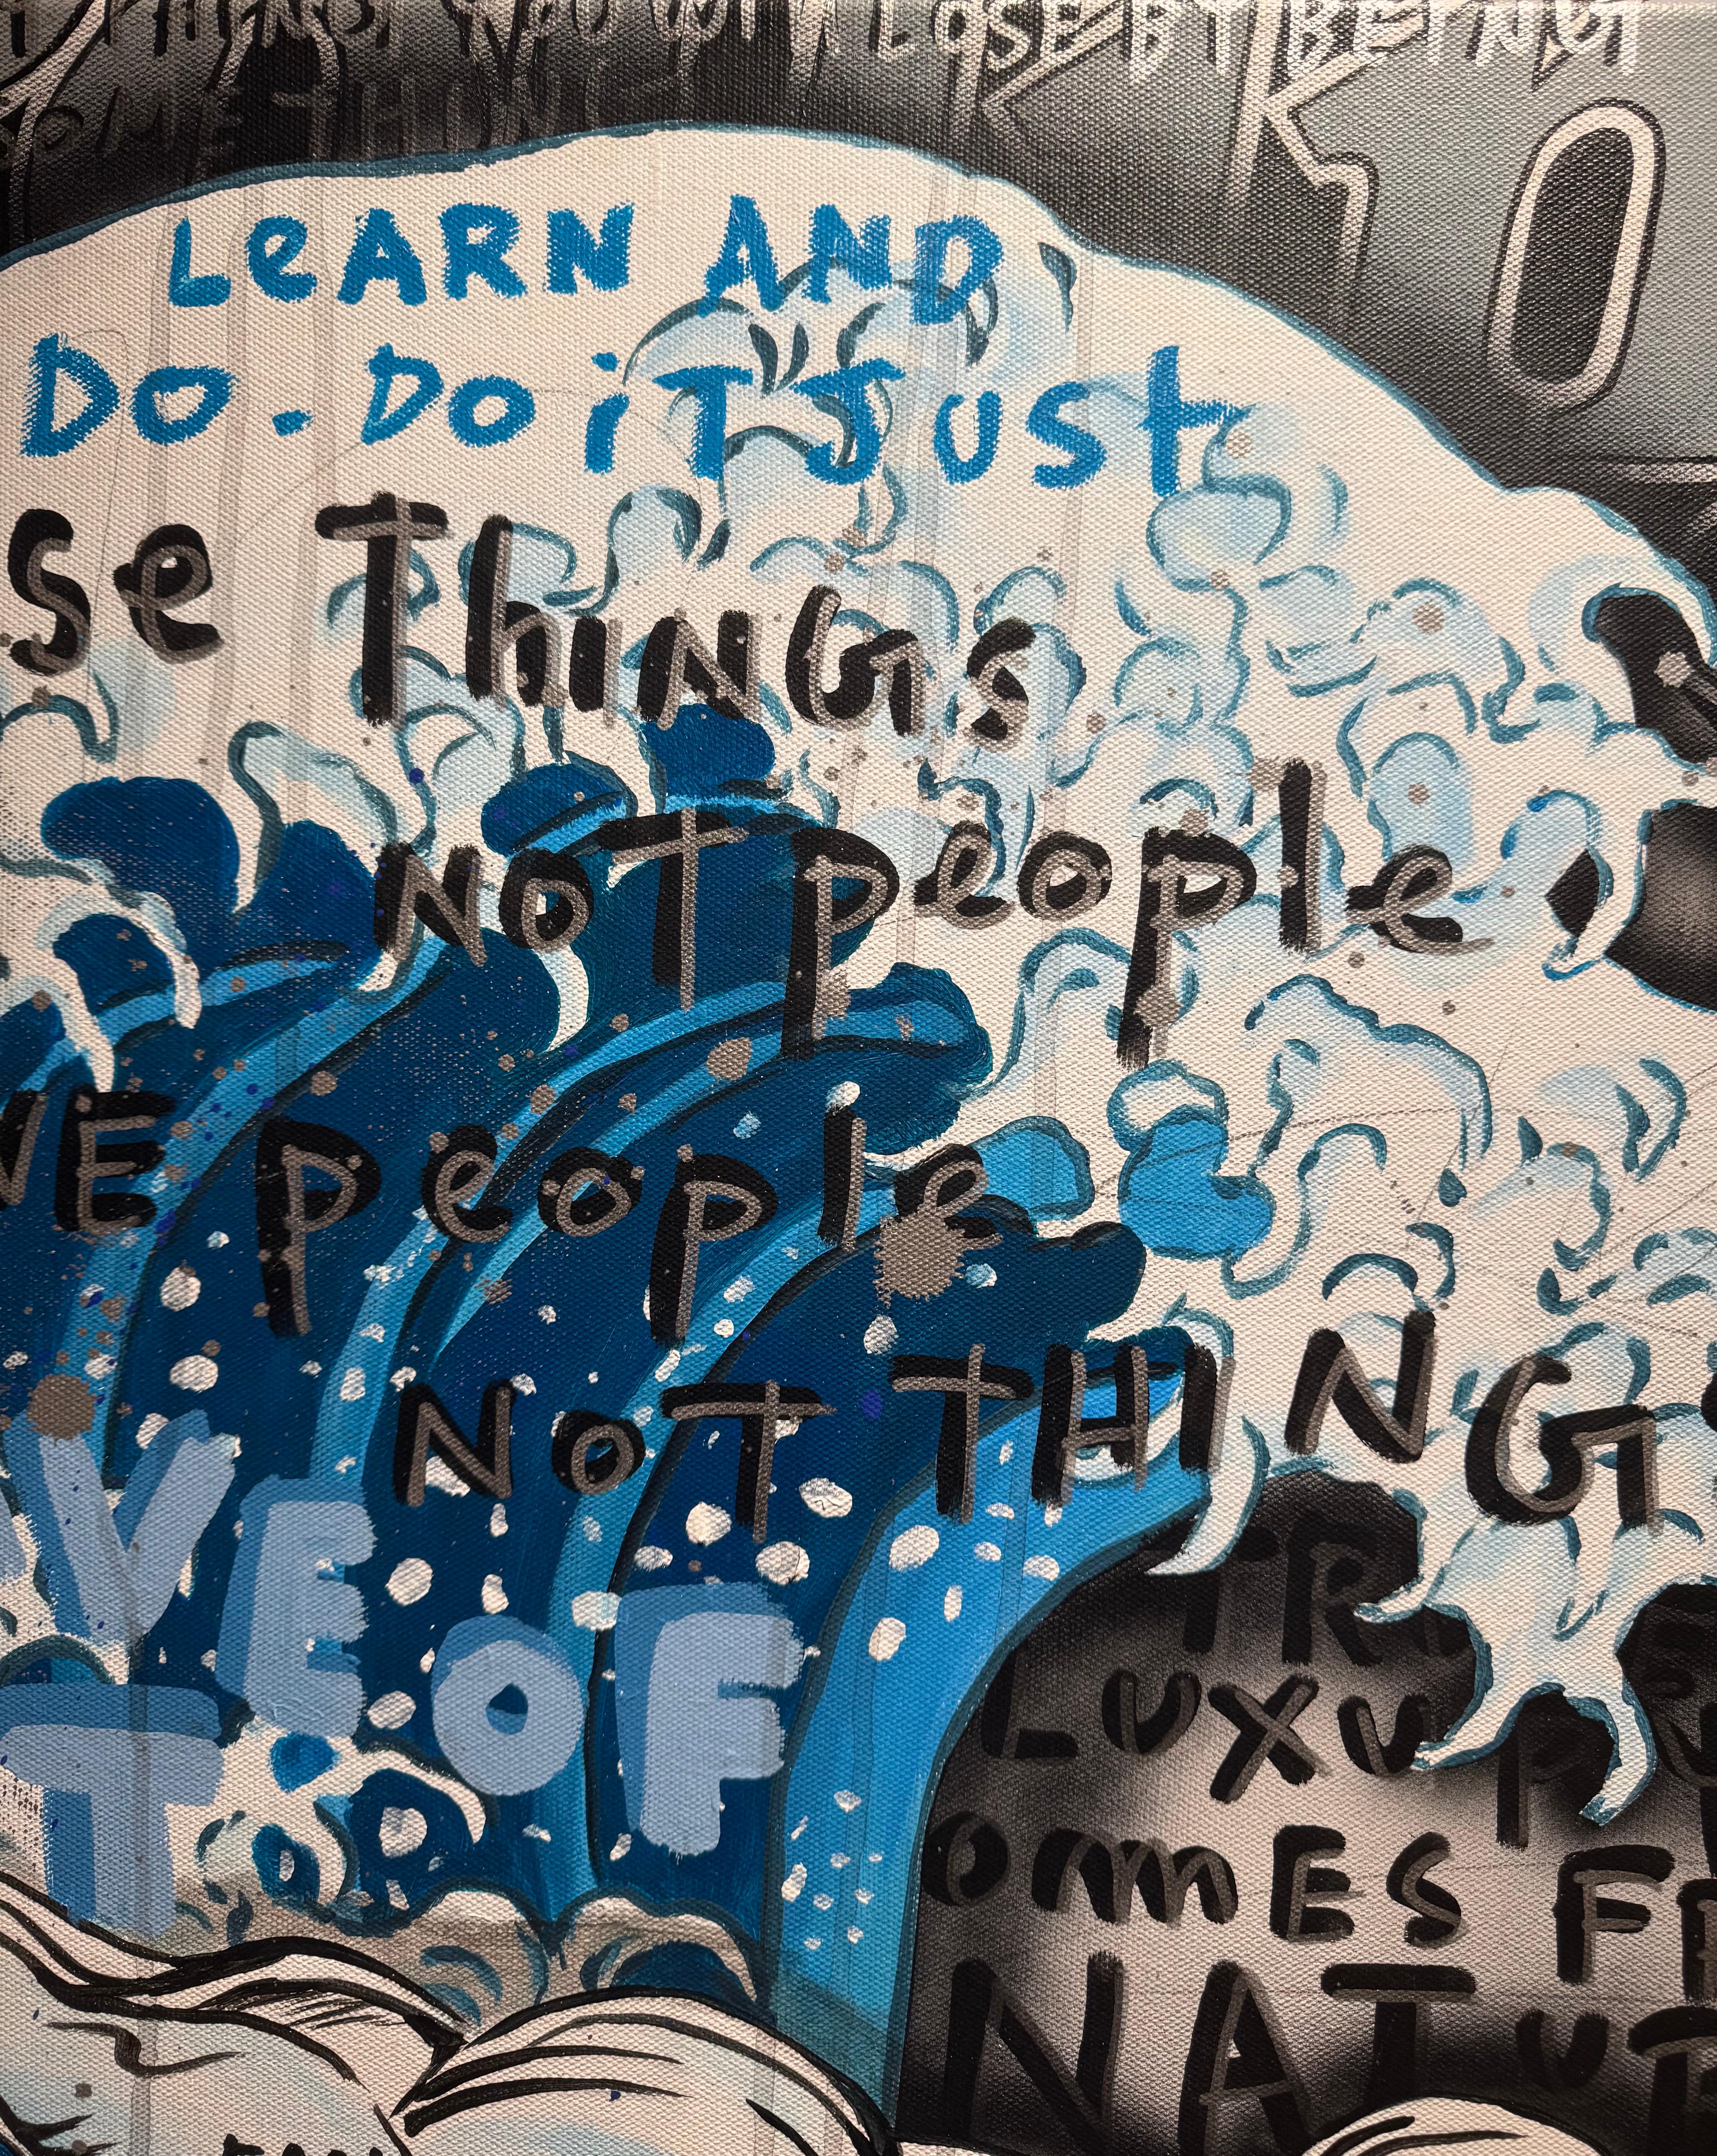 THINGS YOU WILL LOSE BY BEING
SOMETHING
LeARN AND
DO. DO iT JUST
se ThiNGS
NOT people
VE people
NOT THING
VE OF
T
LUXU
OMES FR
NATUR